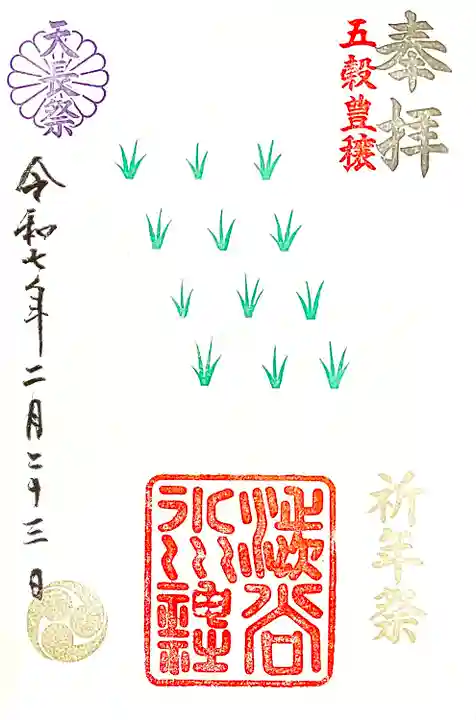 奉拝
五穀豊穣
祈年祭
澁谷
氷川
神社
天長祭
令和七年二月二十三日